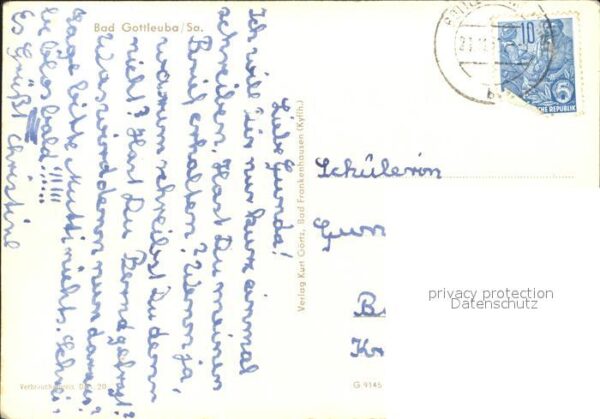 Bad Gottleuba/Sa.
Liebe Gunda!
Ich will Dir nur kurz einmal
schreiben. Hast Du meinen
Brief erhalten? Wenn ja,
warum schreibst Du denn
nicht? Hast Du Bernd gefragt?
Was wird denn nun daraus?
Sage bitte Mutti nichts. Schrei-
be blos bald!!!!!!
Es Grüßt Christine
Verlag Kurt Görtz, Bad Frankenhausen (Kyffh.)
10
SCHE REPUBLIK
Schülerin
Gun
B
Kr
privacy protection
Datenschutz
Verbraucherpreis DM -.20
G 9145